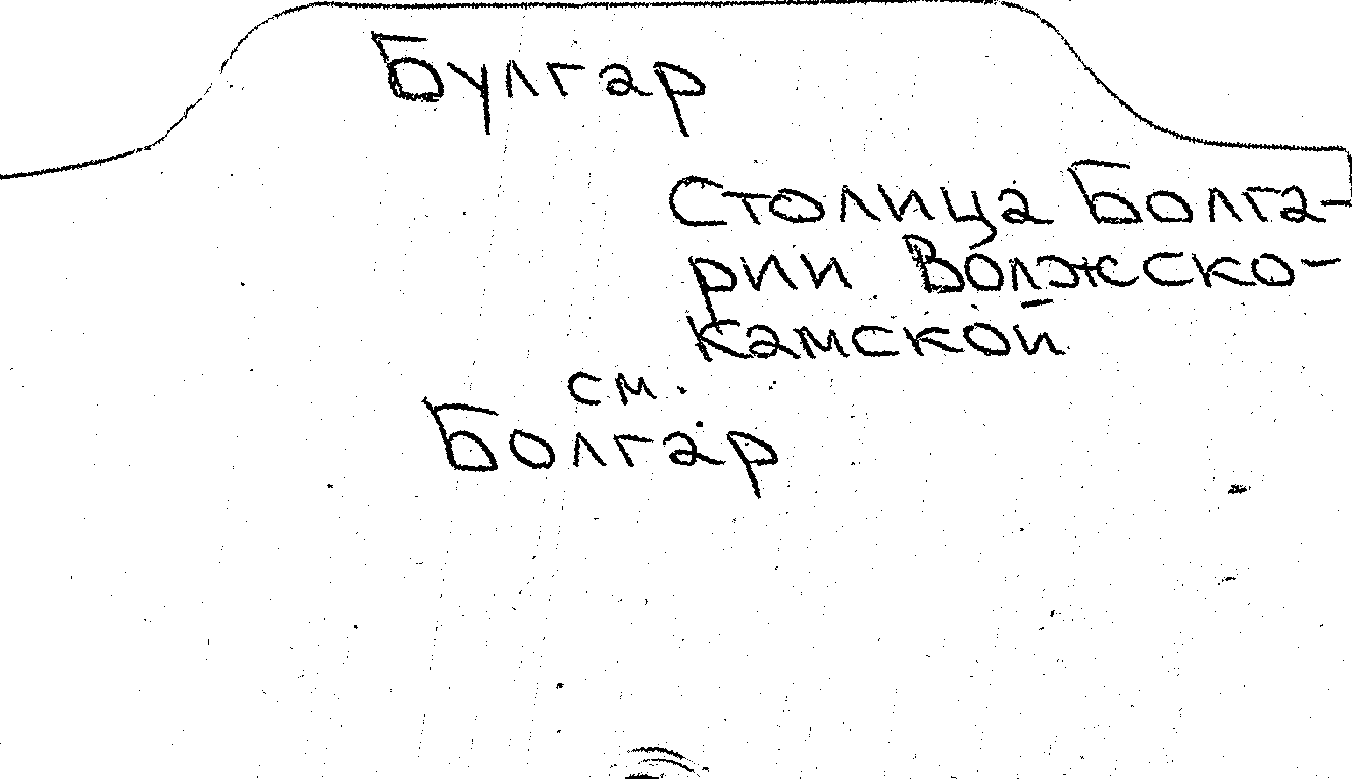 Булгар
Столица Болга-
рии Волжско-
Камской
см.
Болгар